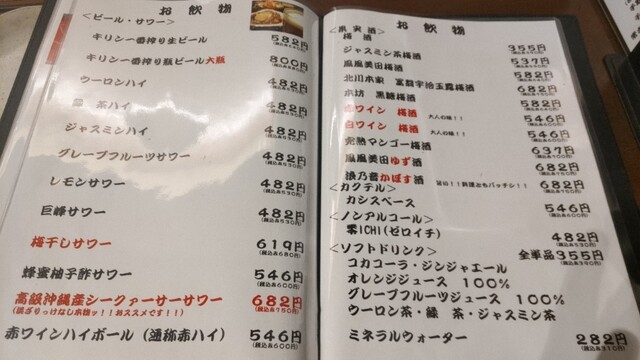 お飲物
<ビール・サワー>
キリン一番搾り生ビール 582円
キリン一番搾り瓶ビール大瓶 800円
ウーロンハイ 482円
緑 茶ハイ 482円
ジャスミンハイ 482円
グレープフルーツサワー 482円
レモンサワー 482円
巨峰サワー 482円
梅干しサワー 619円
(税込み680円)
蜂蜜柚子酢サワー 546円
(税込み600円)
高級沖縄産シークァーサーサワー 682円
(混ざりっけなし本物ッ!!おススメです!!) (税込み750円)
赤ワインハイボール (通称赤ハイ) 546円
(税込み600円)
お飲物
<果実酒>
梅酒 355円
ジャスミン茶梅酒 537円
鳳凰美田梅酒 582円
北川本家 富翁宇治玉露梅酒 682円
本坊 黒糖梅酒 582円
赤ワイン 梅酒 大人の味!! 546円
白ワイン 梅酒 大人の味!! 546円
完熟マンゴー梅酒 637円
鳳凰美田ゆず酒 682円
浪乃音かぼす酒 旨い!!料理ともバッチシ!! 682円
<カクテル>
カシスベース 546円
(税込み600円)
<ノンアルコール>
零ICHI(ゼロイチ) 482円
(税込み530円)
<ソフトドリンク> 全単品355円
コカコーラ・ジンジャエール
オレンジジュース 100%
グレープフルーツジュース 100%
ウーロン茶・緑 茶・ジャスミン茶
ミネラルウォーター 282円
(税込み310円)